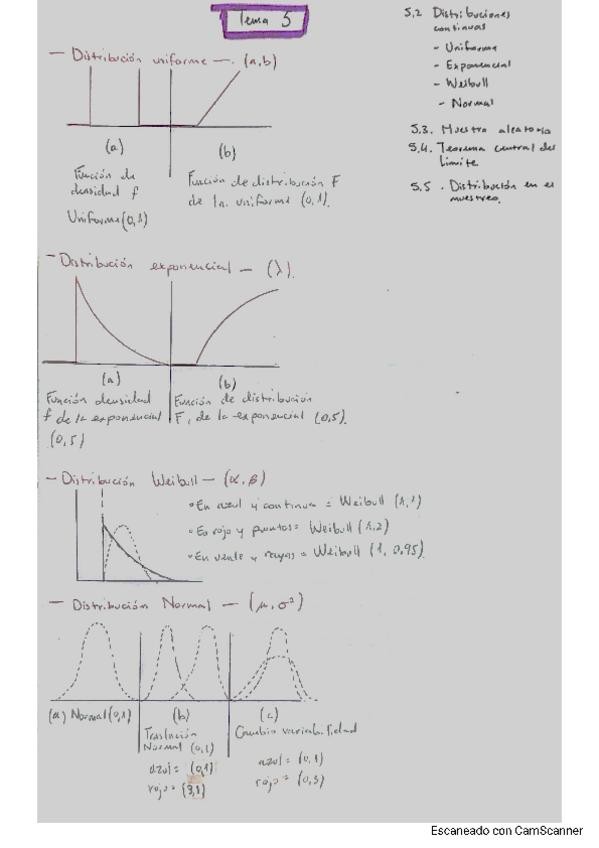 Tema 5
5.2 Distribuciones
continuas
- Uniforme
- Exponencial
- Weibull
- Normal
5.3. Muestra aleatoria
5.4. Teorema central del
límite
5.5. Distribución en el
muestreo
- Distribución uniforme —. (a,b)
(a)
(b)
Función de
densidad f
Uniforme (0,1)
Función de distribución F
de la uniforme (0,1).
- Distribución exponencial — (λ).
(a)
(b)
Función densidad
f de la exponencial
(0,5)
Función de distribución
F, de la exponencial (0,5).
- Distribución Weibull — (α, β)
• En azul y continua = Weibull (1,1)
• En rojo y puntos = Weibull (1,2)
• En verde y rayas = Weibull (1, 0,95).
- Distribución Normal — (μ, σ²)
(a) Normal (0,1)
(b)
Traslación
Normal (0,1)
azul = (0,1)
rojo = (3,1)
(c)
Cambio variabilidad
azul = (0,1)
rojo = (0,3)
Escaneado con CamScanner